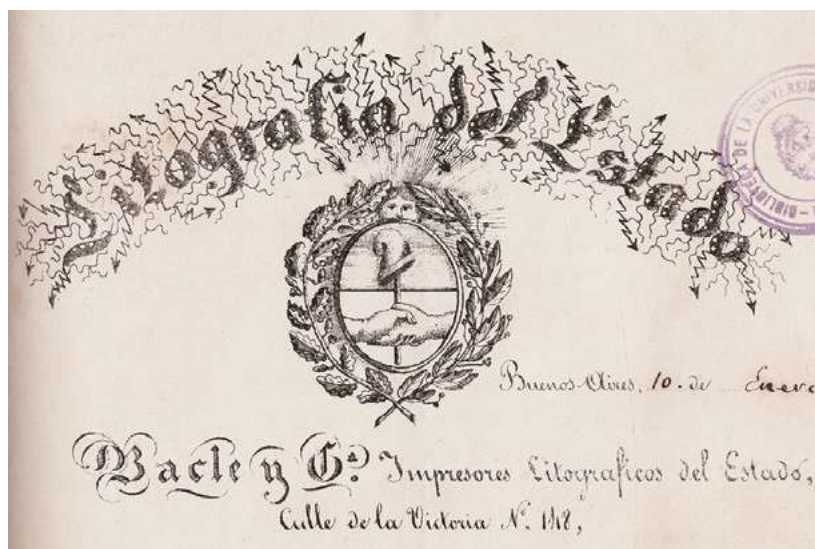 Litografia del Estado
BIBLIOTECA DE LA UNIVERSID
Buenos-Aires, 10. de Enero
Bacle y Cª. Impresores Litograficos del Estado,
Calle de la Victoria Nº. 148,